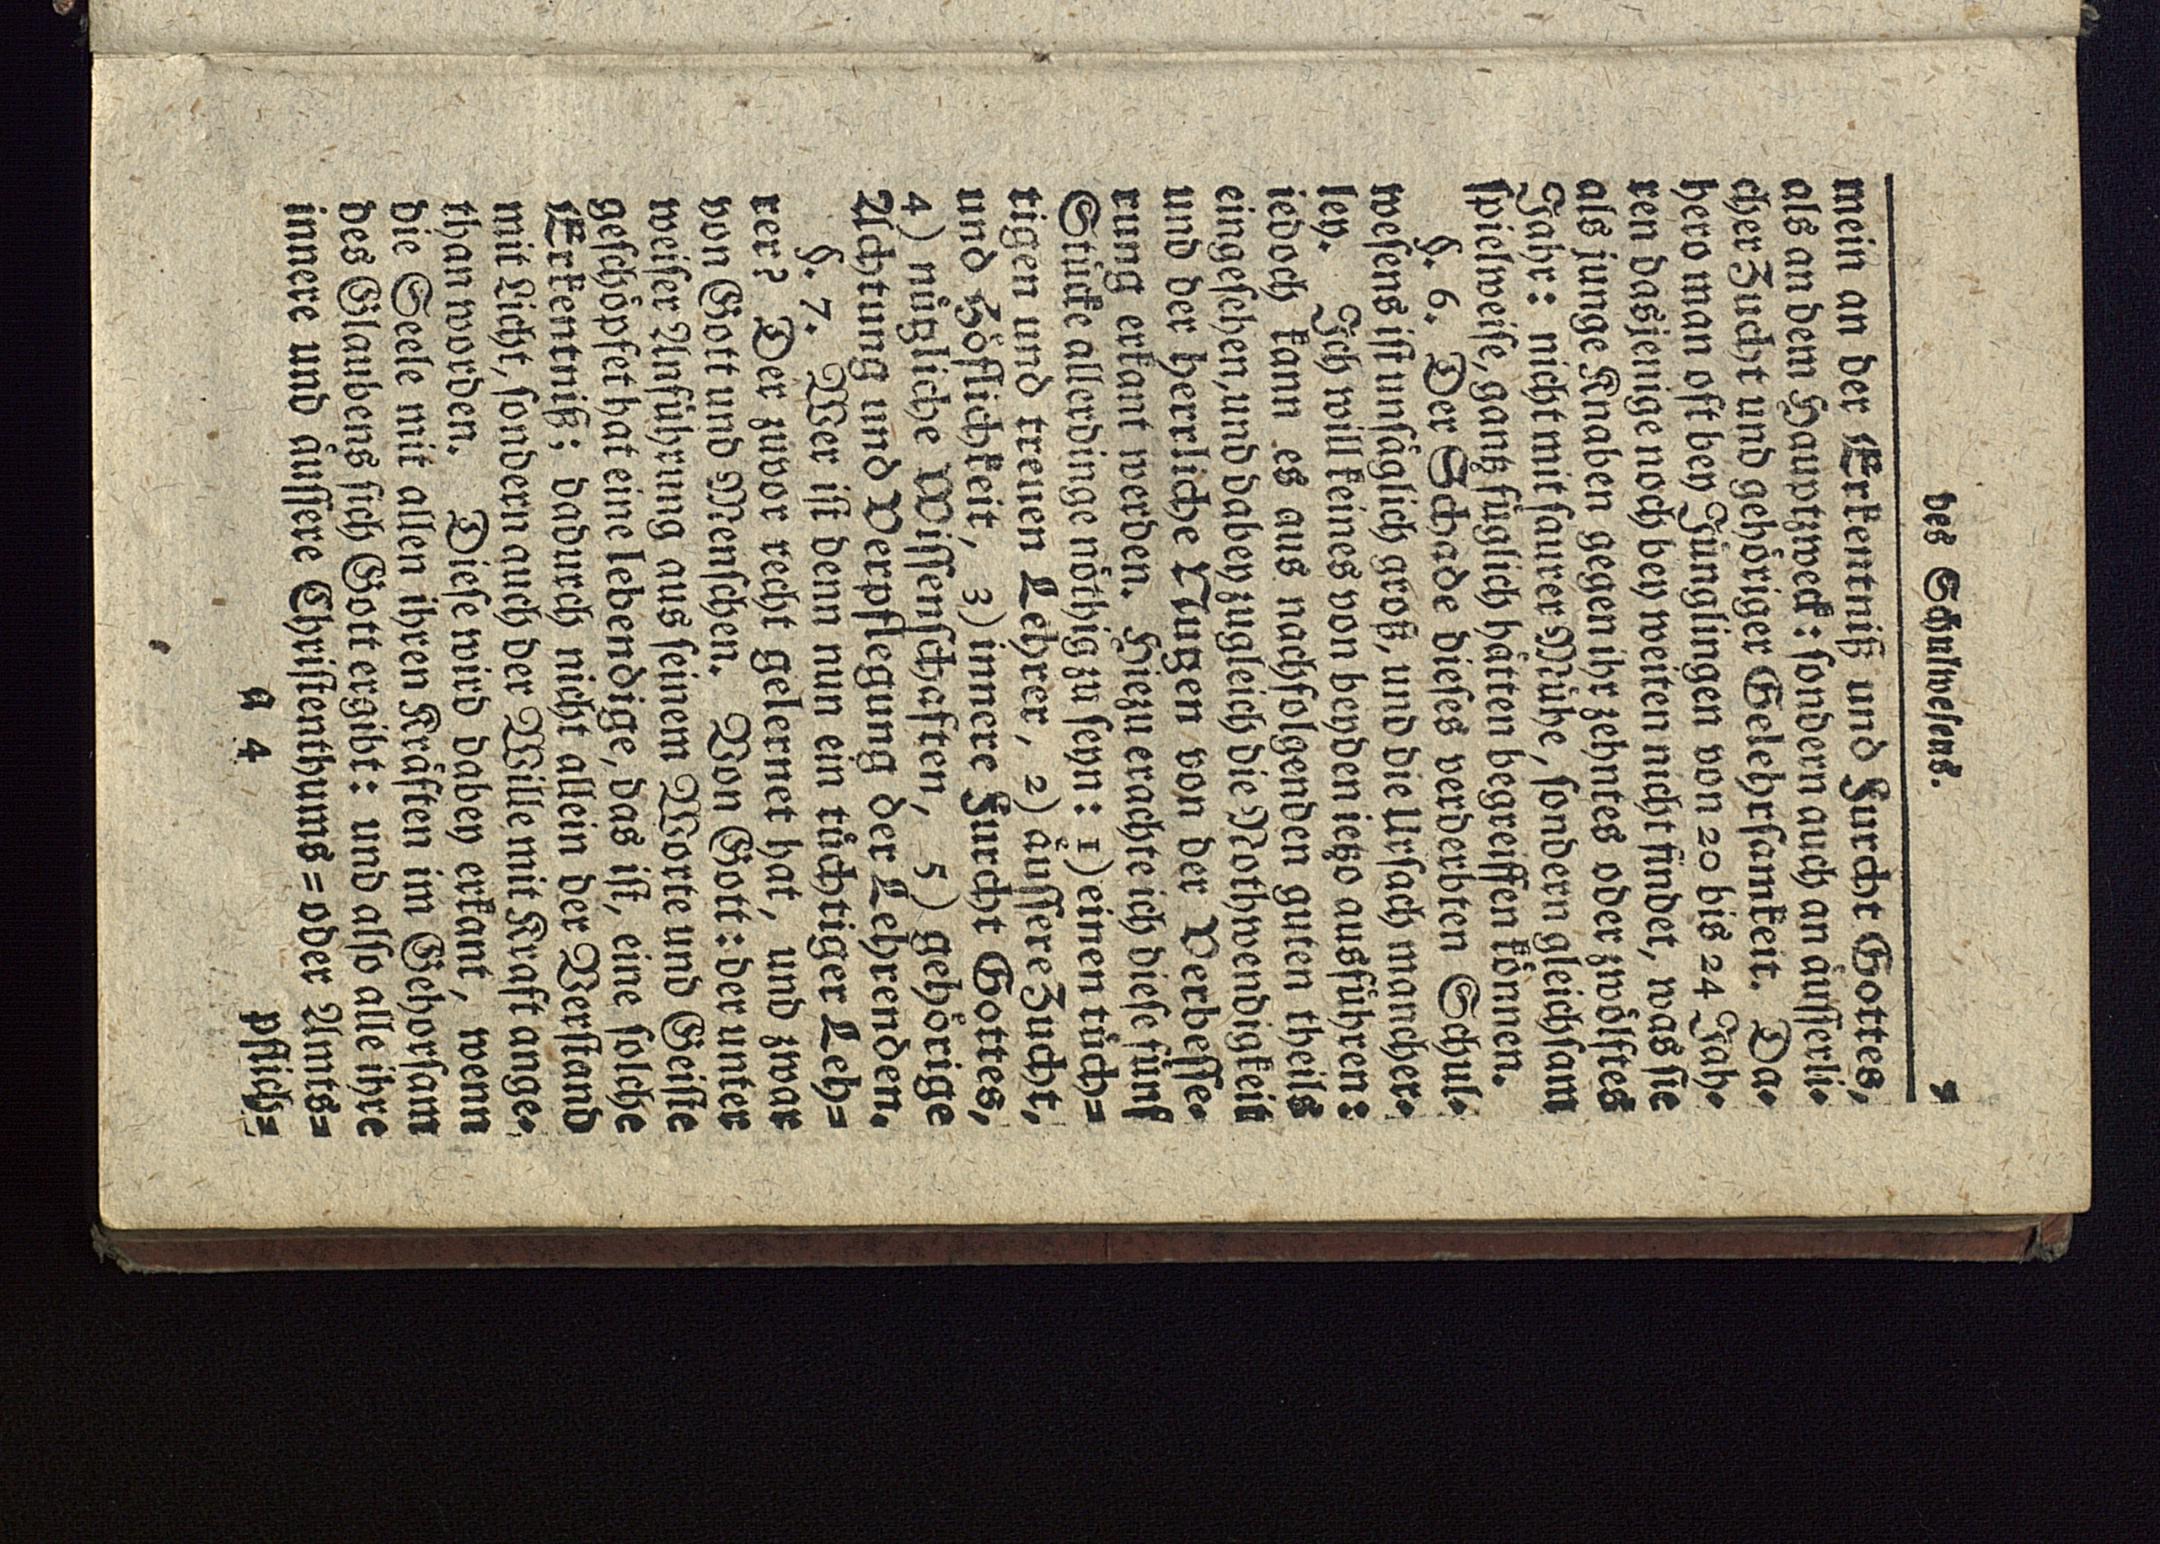 des Schulwesens. 7
mein an der Erkentniß und Furcht Gottes,
als an dem Hauptzweck: sondern auch an äusserli-
cher Zucht und gehöriger Gelehrsamkeit. Da-
hero man oft bey Jünglingen von 20 bis 24 Jah-
ren dasjenige noch bey weiten nicht findet, was sie
als junge Knaben gegen ihr zehntes oder zwölftes
Jahr: nicht mit saurer Mühe, sondern gleichsam
spielweise, gantz füglich hätten begreiffen können.
§. 6. Der Schade dieses verderbten Schul-
wesens ist unsäglich groß, und die Ursach mancher-
ley. Ich will keines von beyden ietzo ausführen:
iedoch kann es aus nachfolgenden guten theils
eingesehen, und dabey zugleich die Nothwendigkeit
und der herrliche Nutzen von der Verbesse-
rung erkant werden. Hiezu erachte ich diese fünf
Stücke allerdinge nöthig zu seyn: 1) einen tüch=
tigen und treuen Lehrer, 2) äussere Zucht,
und Höflichkeit, 3) innere Furcht Gottes,
4) nützliche Wissenschaften, 5) gehörige
Achtung und Verpflegung der Lehrenden.
§. 7. Wer ist denn nun ein tüchtiger Leh=
rer? Der zuvor recht gelernet hat, und zwar
von Gott und Menschen. Von Gott: der unter
weiser Anführung aus seinem Worte und Geiste
geschöpfet hat eine lebendige, das ist, eine solche
Erkentniß; dadurch nicht allein der Verstand
mit Licht, sondern auch der Wille mit Kraft ange-
than worden. Diese wird dabey erkant, wenn
die Seele mit allen ihren Kräften im Gehorsam
des Glaubens sich Gott ergibt: und also alle ihre
innere und äussere Christenthums=oder Amts=
a 4 pflich=